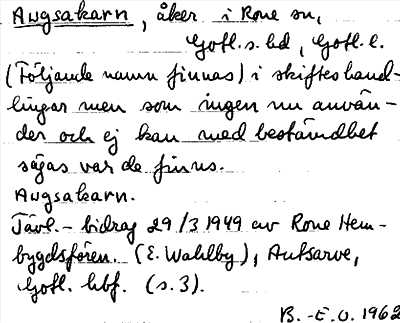 Augsakarn, åker i Rone sn,
Gotl. s. hd, Gotl. l.
(Följande namn finnas) i skifteshand-
lingar men som ingen nu använ-
der och ej kan med bestämdhet
säjas var de finns.
Augsakarn.
Tävl.- bidrag 29/3 1949 av Rone Hem-
bygdsfören. (E. Wahlby), Autsarve,
Gotl. hbf. (s. 3).
B.-E. O. 1962